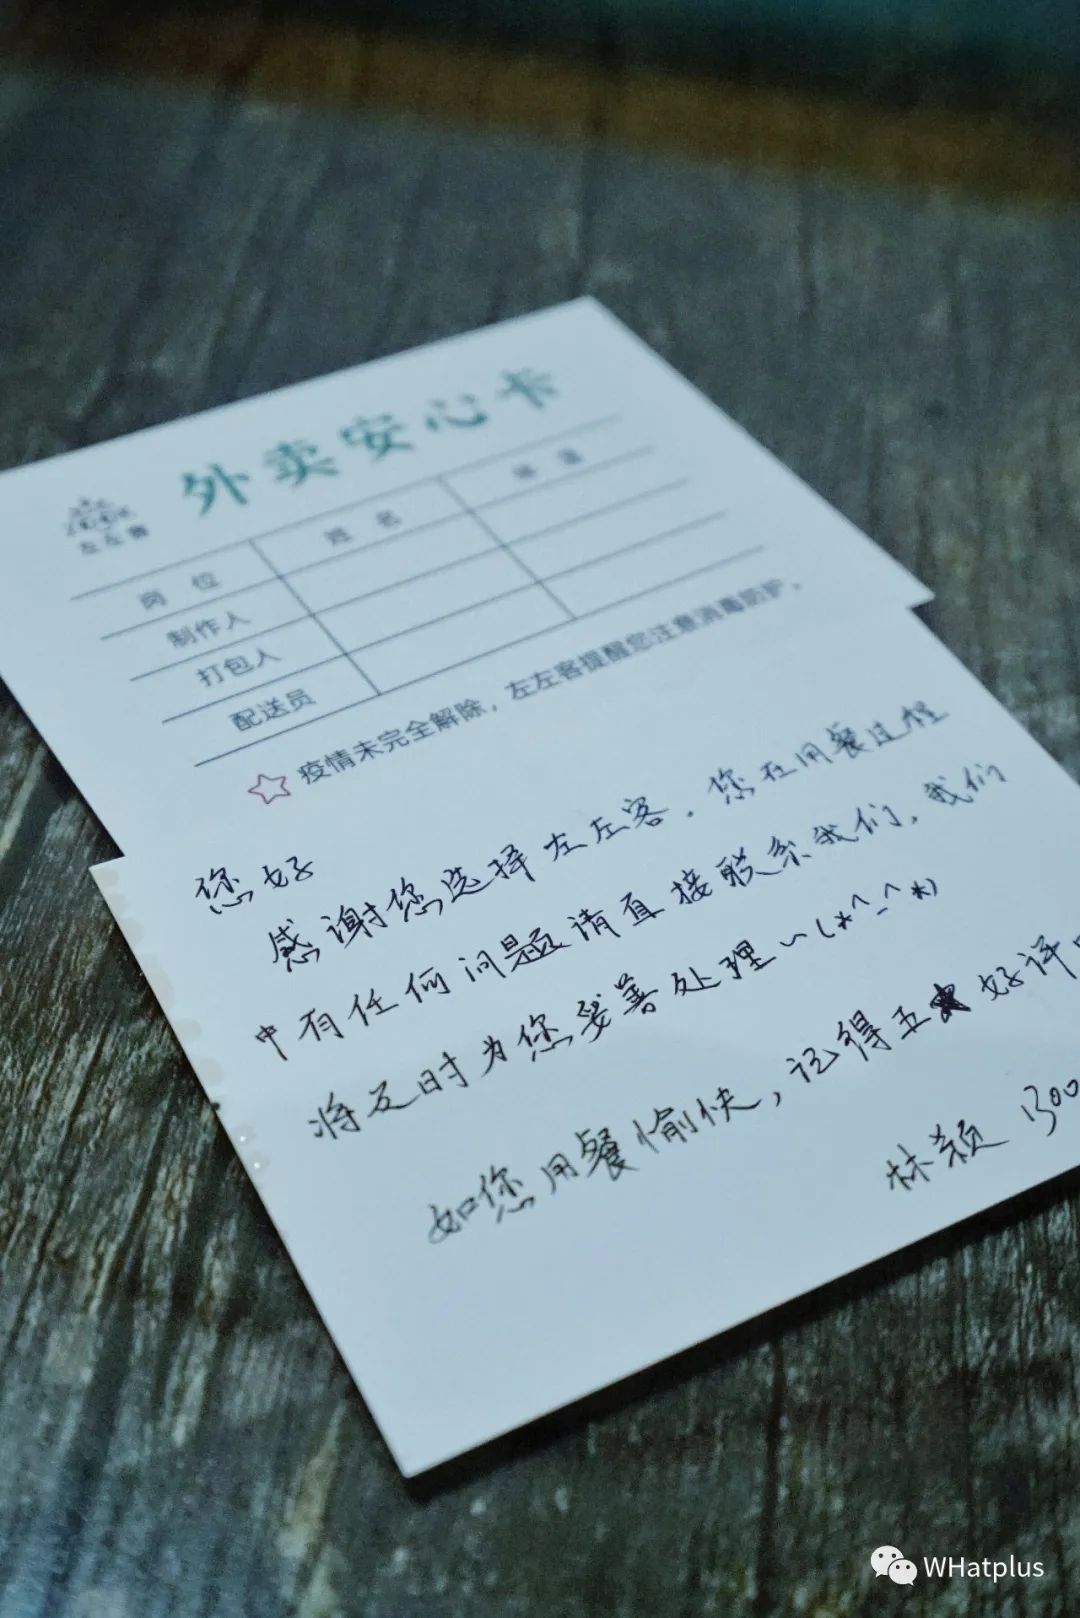 外卖安心卡
左左客
岗 位 姓 名 体 温
制作人
打包人
配送员
疫情未完全解除，左左客提醒您注意消毒防护。
您好
感谢您选择左左客．您在用餐过程
中有任何问题请直接联系我们，我们
将及时为您妥善处理～(*^_^*)
如您用餐愉快，记得五★好评
林颖 1300
WHatplus